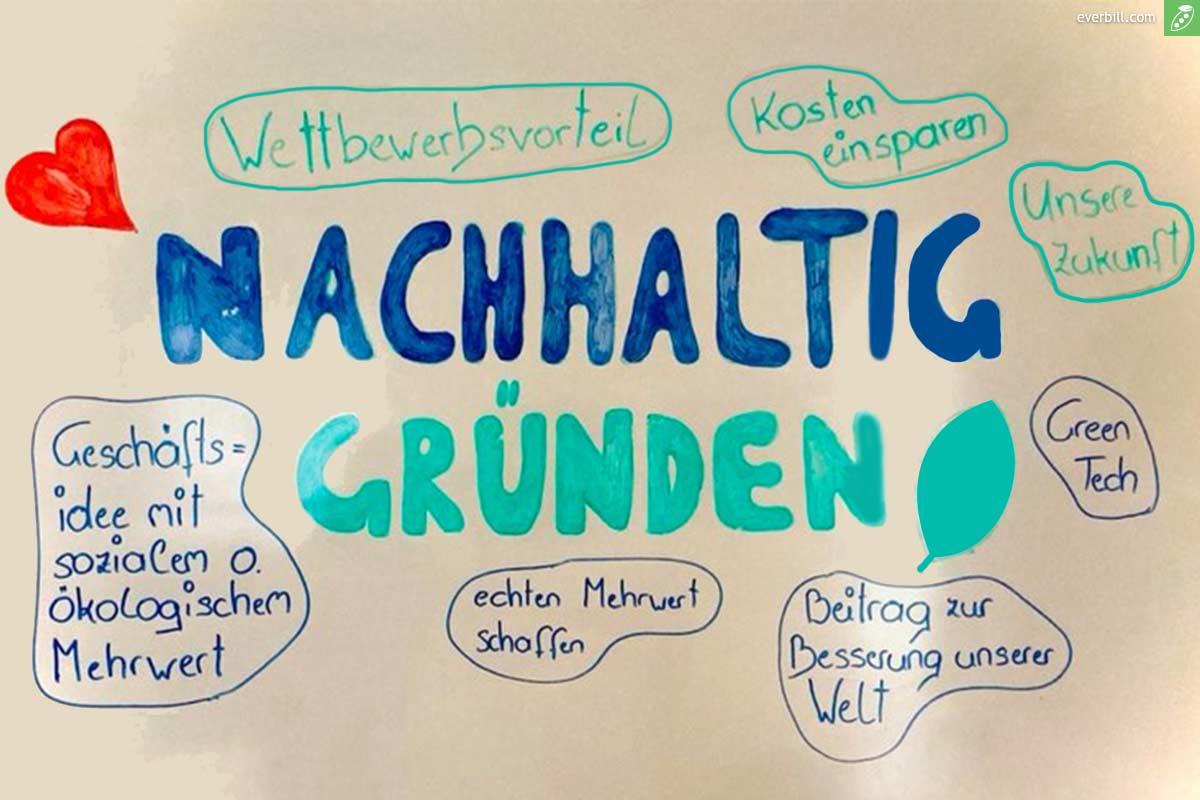 everbill.com
Wettbewerbsvorteil
Kosten
einsparen
Unsere
Zukunft
NACHHALTIG
GRÜNDEN
Geschäfts=
idee mit
sozialem o.
ökologischem
Mehrwert
echten Mehrwert
schaffen
Green
Tech
Beitrag zur
Besserung unserer
Welt